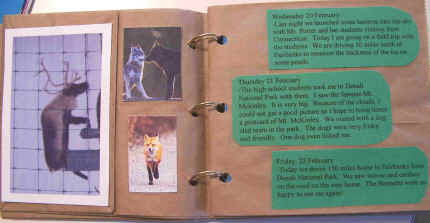 Wednesday 20 February
Last night we launched some balloons into the sky
with Mr. Porter and his students visiting from
Connecticut. Today I am going on a field trip with
the students. We are driving 30 miles north of
Fairbanks to measure the thickness of the ice on
some ponds.
Thursday 21 February
The high school students took me to Denali
National Park with them. I saw the famous Mt.
McKinley. It is very big. Because of the clouds, I
could not get a good picture so I hope to bring home
a postcard of Mt. McKinley. We visited with a dog
sled team in the park. The dogs were very frisky
and friendly. One dog even licked me.
Friday, 22 February
Today we drove 150 miles home to Fairbanks from
Denali National Park. We saw moose and caribou
on the road on the way home. The Bennetts were so
happy to see me again!